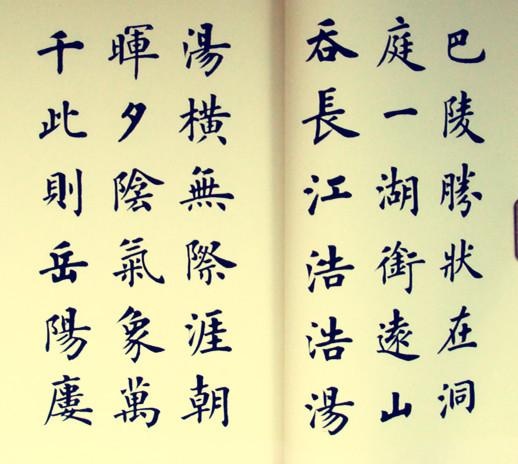 巴陵勝狀在洞
庭一湖銜遠山
吞長江浩浩湯
湯橫無際涯朝
暉夕陰氣象萬
千此則岳陽廔